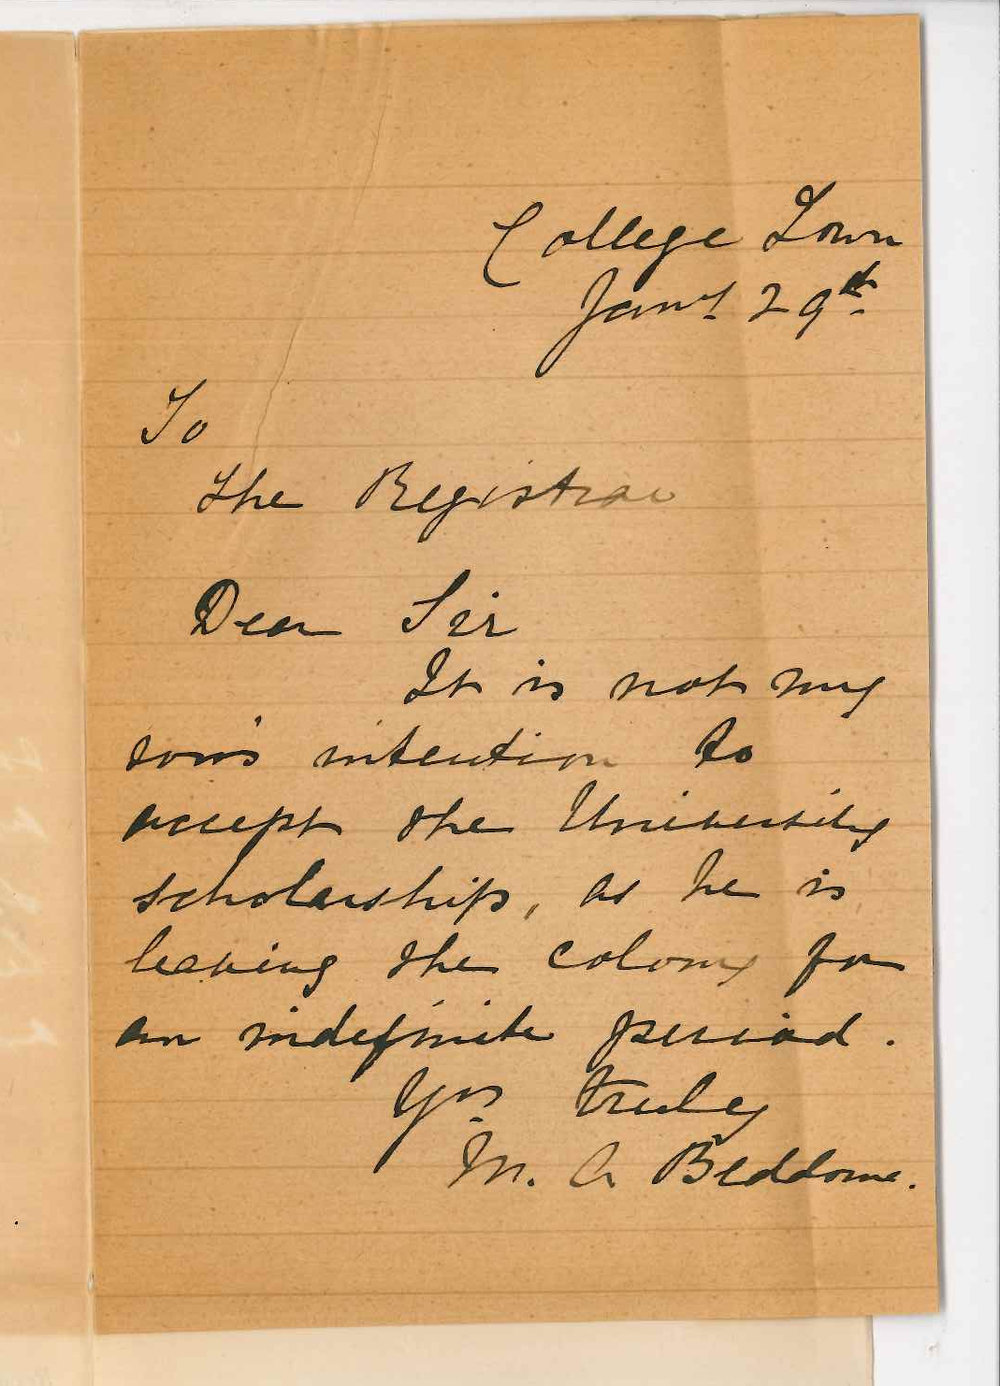 College Town
Jany 29th
To
the Registrar
Dear Sir
It is not my
son's intention to
accept the University
scholarship, as he is
leaving the colony for
an indefinite period.
Yrs truly
M. A Beddome.